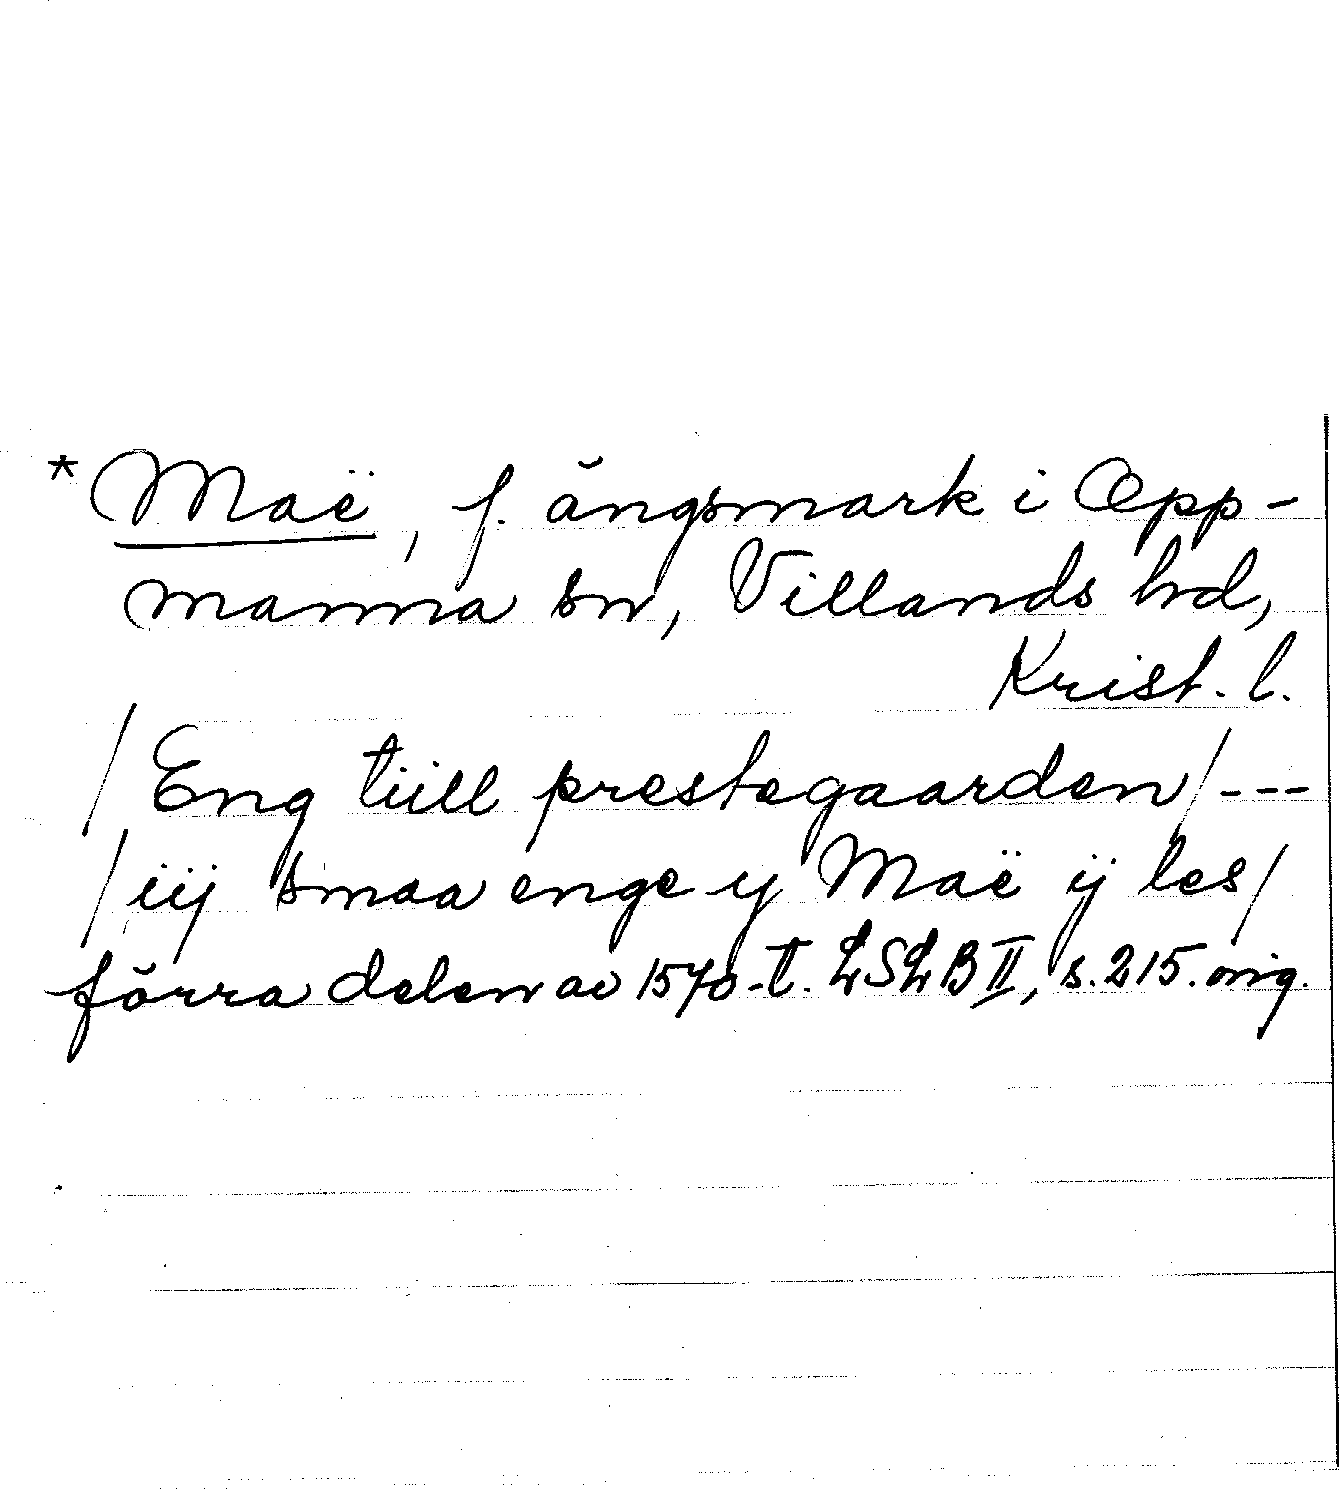 *Maë, f. ängsmark i Opp-
manna sn, Villands hd,
Krist. l.
/Eng tiill prestegaarden/---
/iij smaa enge y Maë ij les/
förra delen av 1570-t. LSLB II, s. 215. orig.